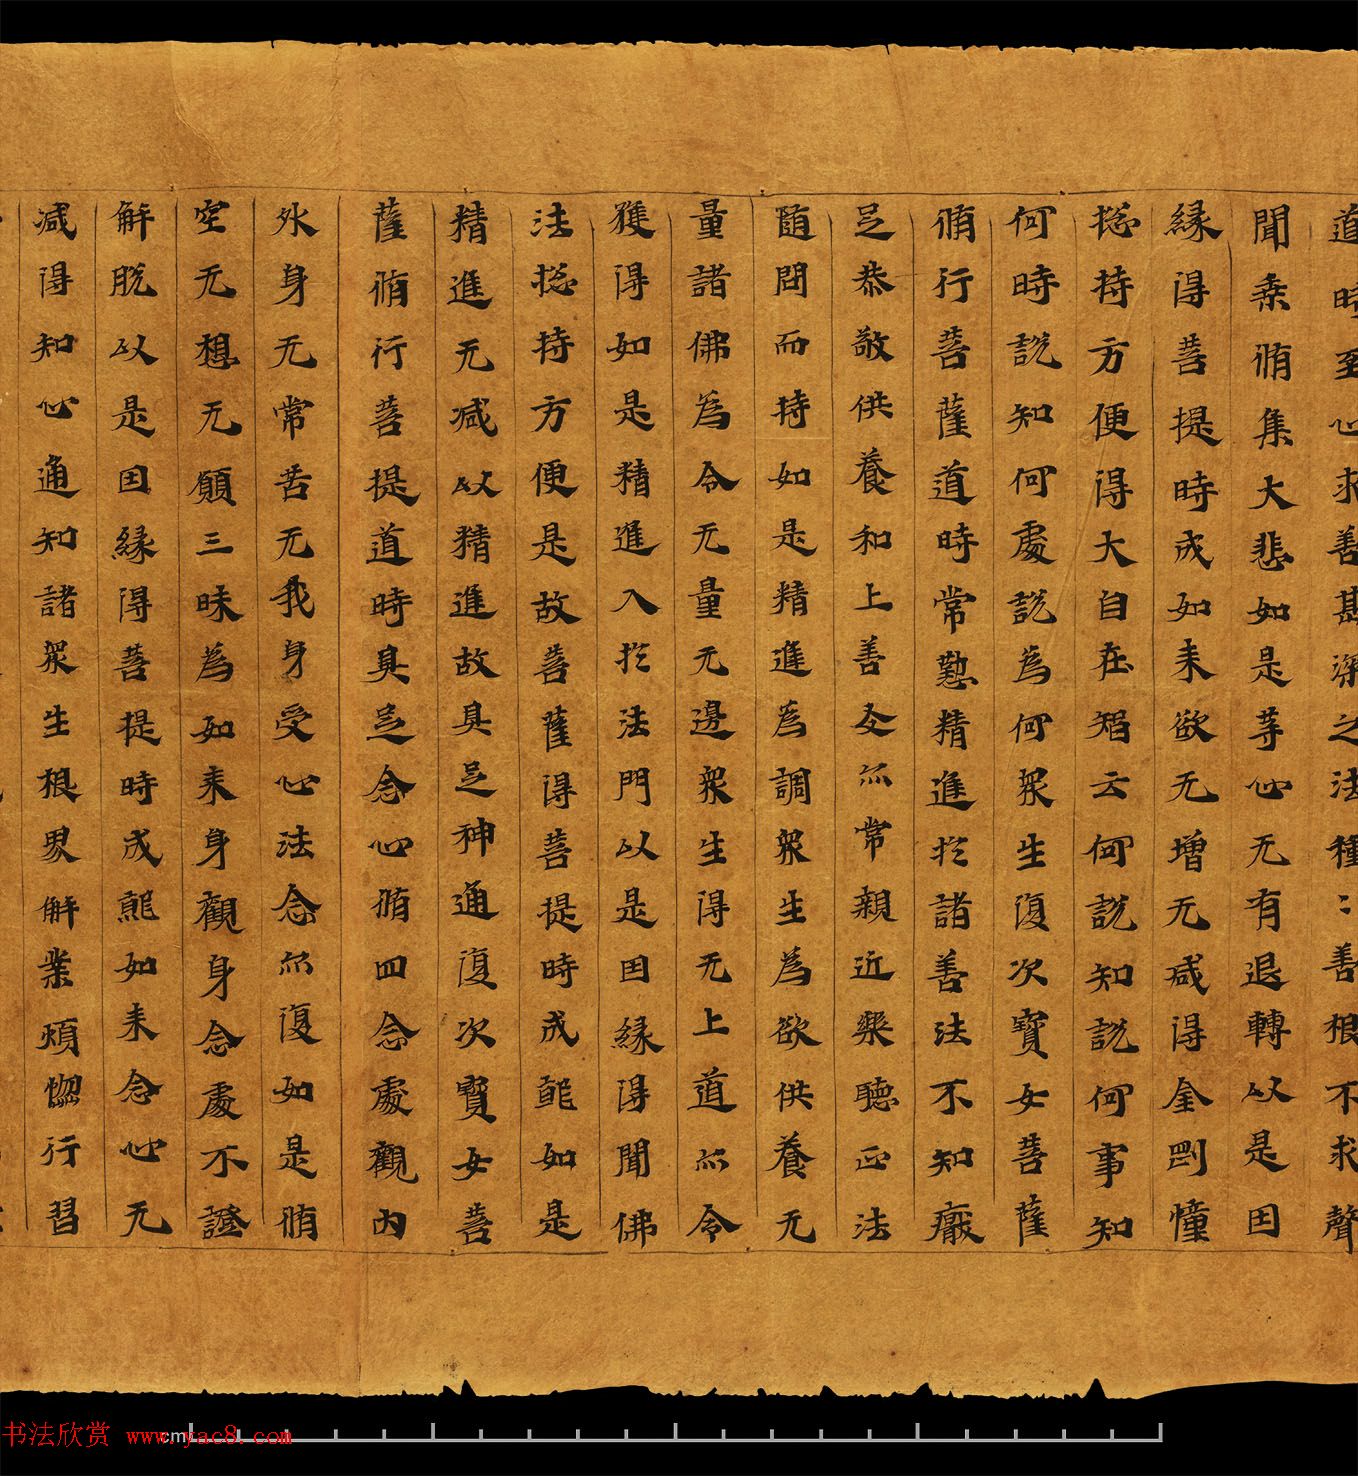 道時至心求善甚深之法種〻善根不求聲
聞乘脩集大悲如是等心无有退轉以是因
緣得菩提時成如来欲无增无减得金剛幢
捴持方便得大自在智云何說知說何事知
何時說知何處說為何衆生復次寳女菩薩
脩行菩薩道時常懃精進於諸善法不知猒
足恭敬供養和上善友亦常親近樂聽正法
随問而持如是精進為調衆生為欲供養无
量諸佛為令无量无邊衆生得无上道亦令
獲得如是精進入於法門以是因緣得聞佛
法捴持方便是故菩薩得菩提時成就如是
精進无减以精進故具足神通復次寳女菩
薩脩行菩提道時具足念心脩四念處觀内
外身无常苦无我身受心法念亦復如是脩
空无想无願三昧為如来身觀身念處不證
解脫以是因緣得菩提時成就如来念心无
减得知心通知諸衆生根界解業煩惱行習
书法欣赏 www.yac8.com
cm